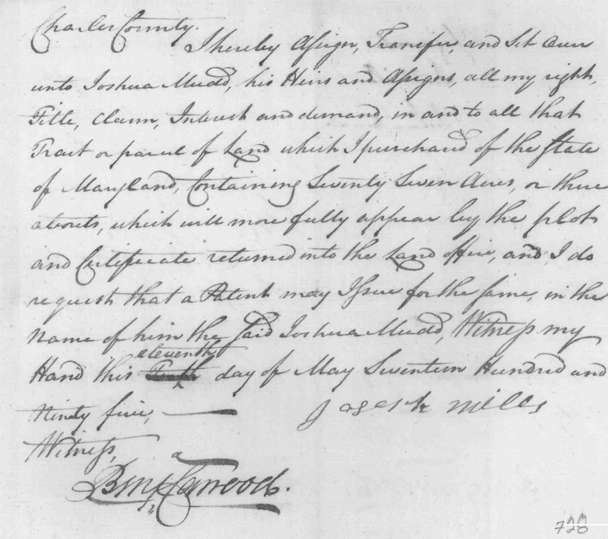 Charles County.
I hereby Assign, Transfer, and Set Over
unto Joshua Mudd, his Heirs and Assigns, all my right,
Title, Claim, Interest and demand, in and to all that
Tract or parcel of Land which I purchased of the State
of Maryland, Containing Seventy Seven Acres, or there
abouts, which will more fully appear by the plot
and Certificate returned into the Land Office, and I do
request that a Patent may Issue for the same, in the
name of him the said Joshua Mudd, Witness my
eleventh
Hand this Tenth day of May Seventeen Hundred and
Ninety five,
Joseph Mills
Witness,
Benja Cawood.
728